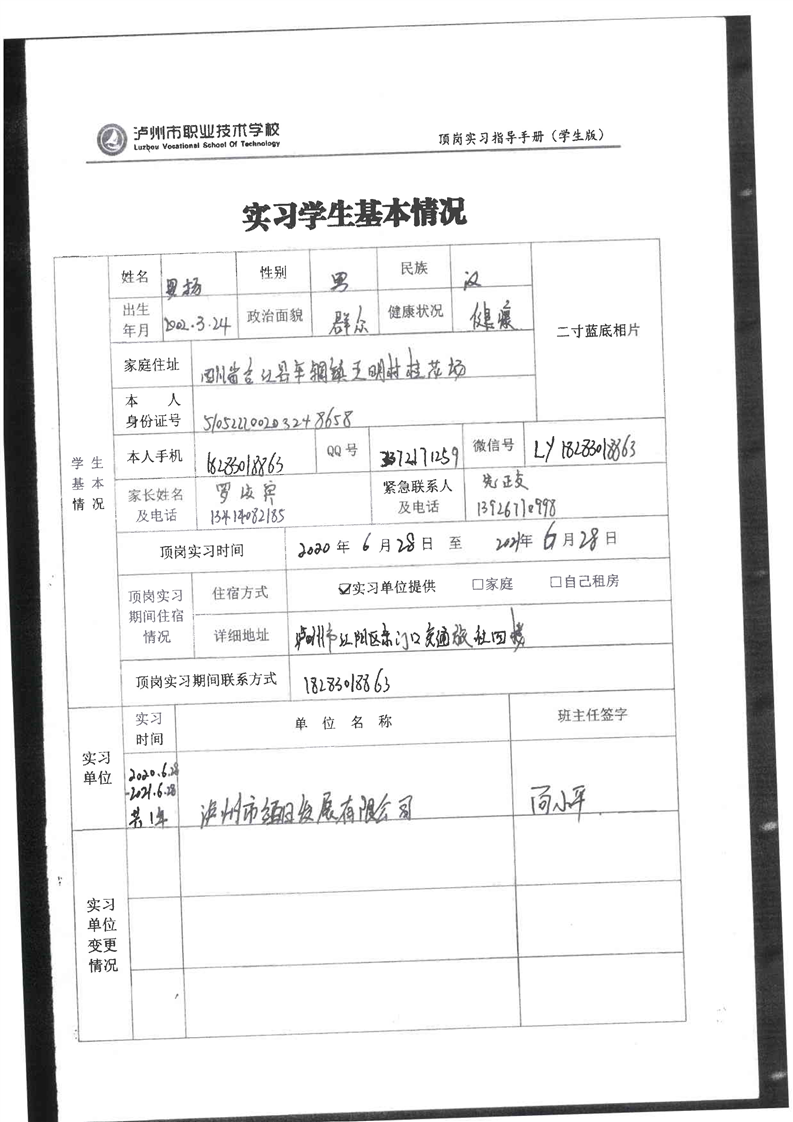 泸州市职业技术学校
Luzhou Vocational School Of Technology
顶岗实习指导手册（学生版）
实习学生基本情况
姓名 性别 男 民族 汉
出生年月 2002.3.24 政治面貌 群众 健康状况 健康
二寸蓝底相片
家庭住址 四川省合江县车辋镇天明村桂花场
本人身份证号 510522200203248658
学生基本情况
本人手机 18283018863 QQ号 3372171259 微信号 LY18283018863
家长姓名及电话 13414082185 紧急联系人及电话 先正文
顶岗实习时间 2020年6月28日 至 2021年6月28日
顶岗实习期间住宿情况 住宿方式 ☑实习单位提供 □家庭 □自己租房
详细地址 泸州市江阳区东门口交通旅社四楼
顶岗实习期间联系方式 18283018863
实习时间 单位名称 班主任签字
实习单位
2020.6.28
-2021.6.28
共1年 泸州市 发展有限公司 小平
实习单位变更情况